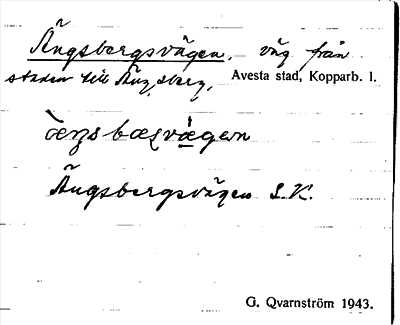 Ängsbergsvägen, väg från
staden till Ängsberg, Avesta stad, Kopparb. l.
Ängsbergsvägen S.K.
G. Qvarnström 1943.